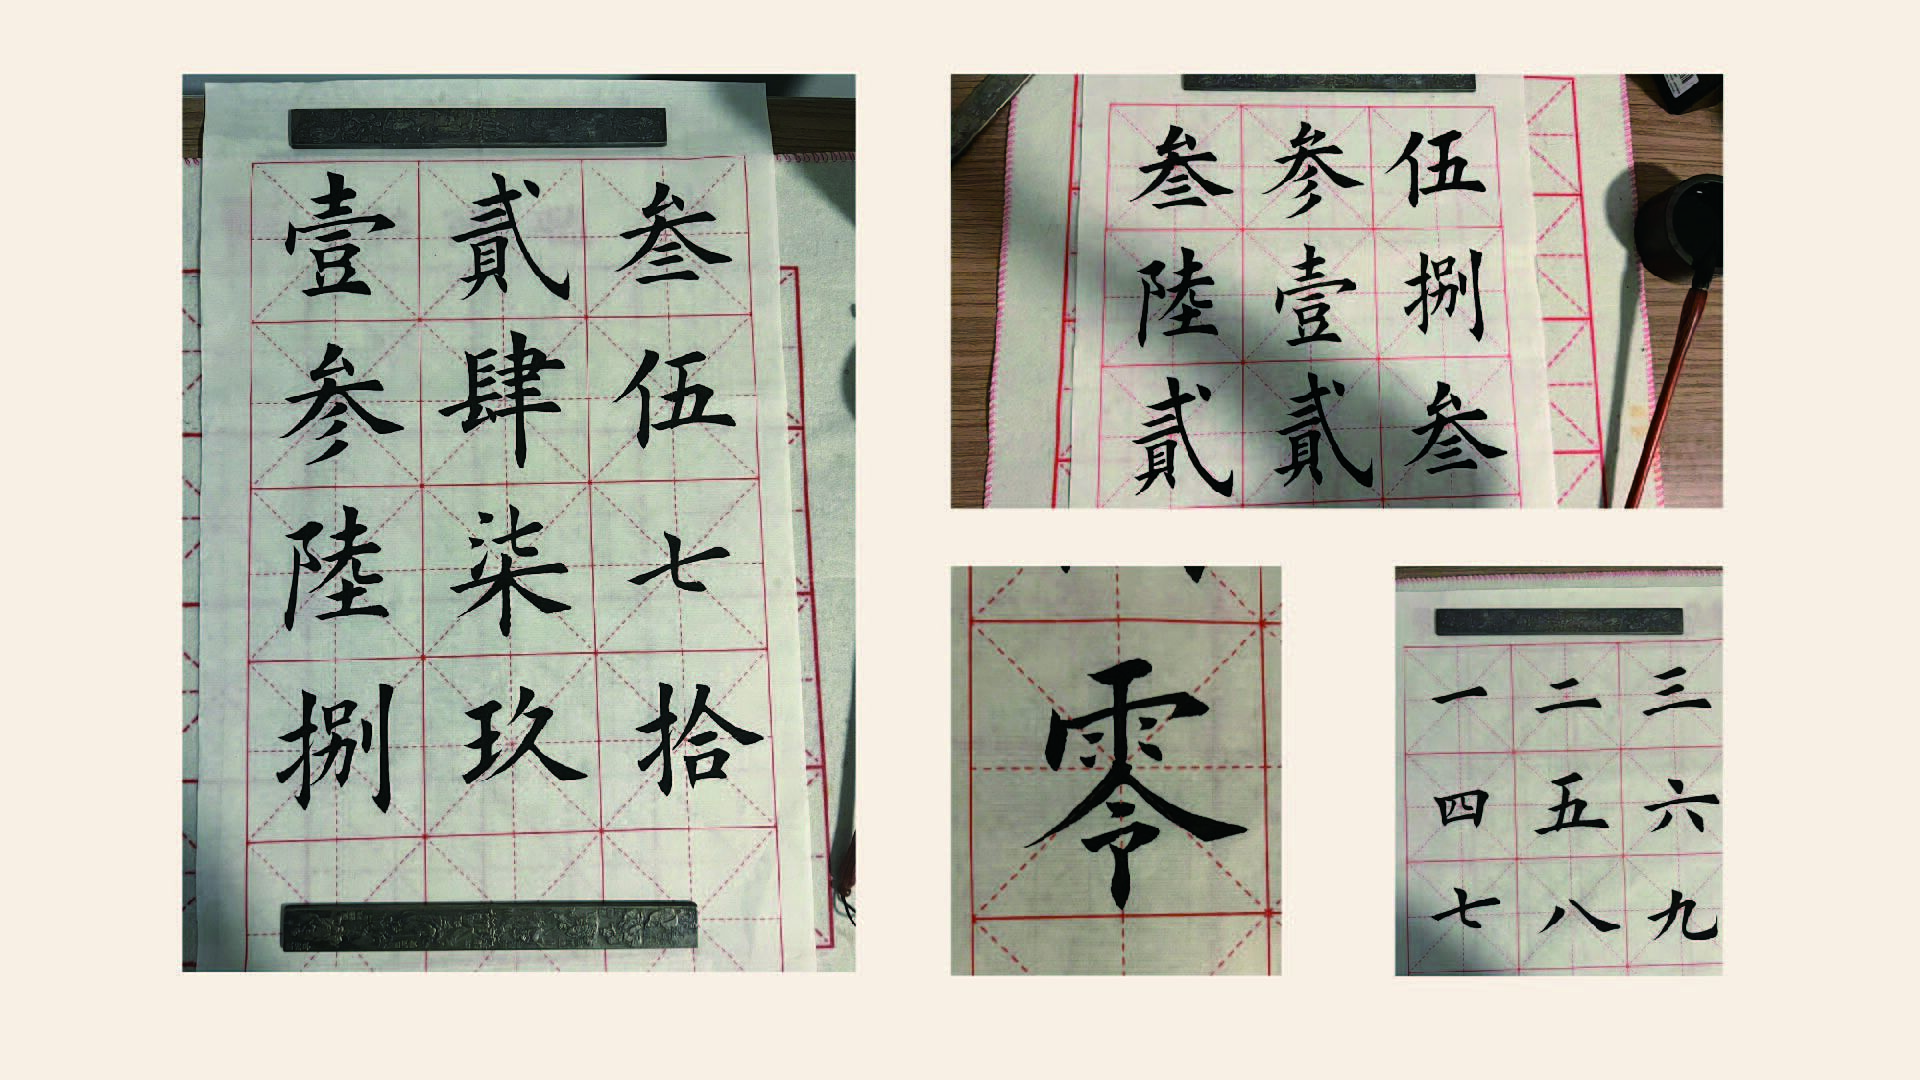 壹貳叁
参肆伍
陸柒七
捌玖拾
叁参伍
陸壹捌
貳貳叁
零
一二三
四五六
七八九